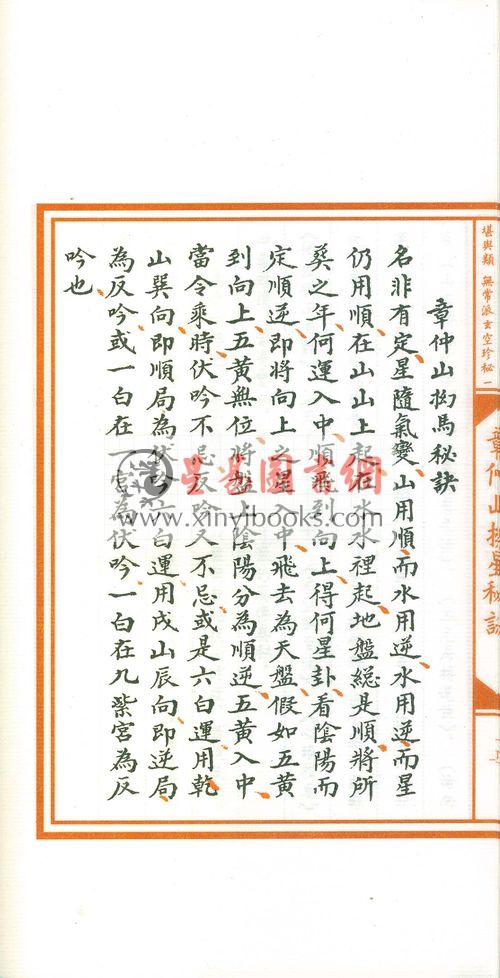 堪輿類 無常派玄空珍秘 一
章仲山挨星秘訣
章仲山拗馬秘訣
名非有定星隨氣變山用順而水用逆水用逆而星
仍用順在山山上起在水水裡起地盤總是順將所
葬之年何運入中順飛到向上得何星卦看陰陽而
定順逆即將向上之星入中飛去為天盤假如五黃
到向上五黃無位將盤上陰陽分為順逆五黃入中
當令乘時伏吟不忌反吟又不忌或是六白運用乾
山巽向即順局為伏吟六白運用戌山辰向即逆局
為反吟或一白在一宮為伏吟一白在九紫宮為反
吟也
圖書網
www.xinyibooks.com